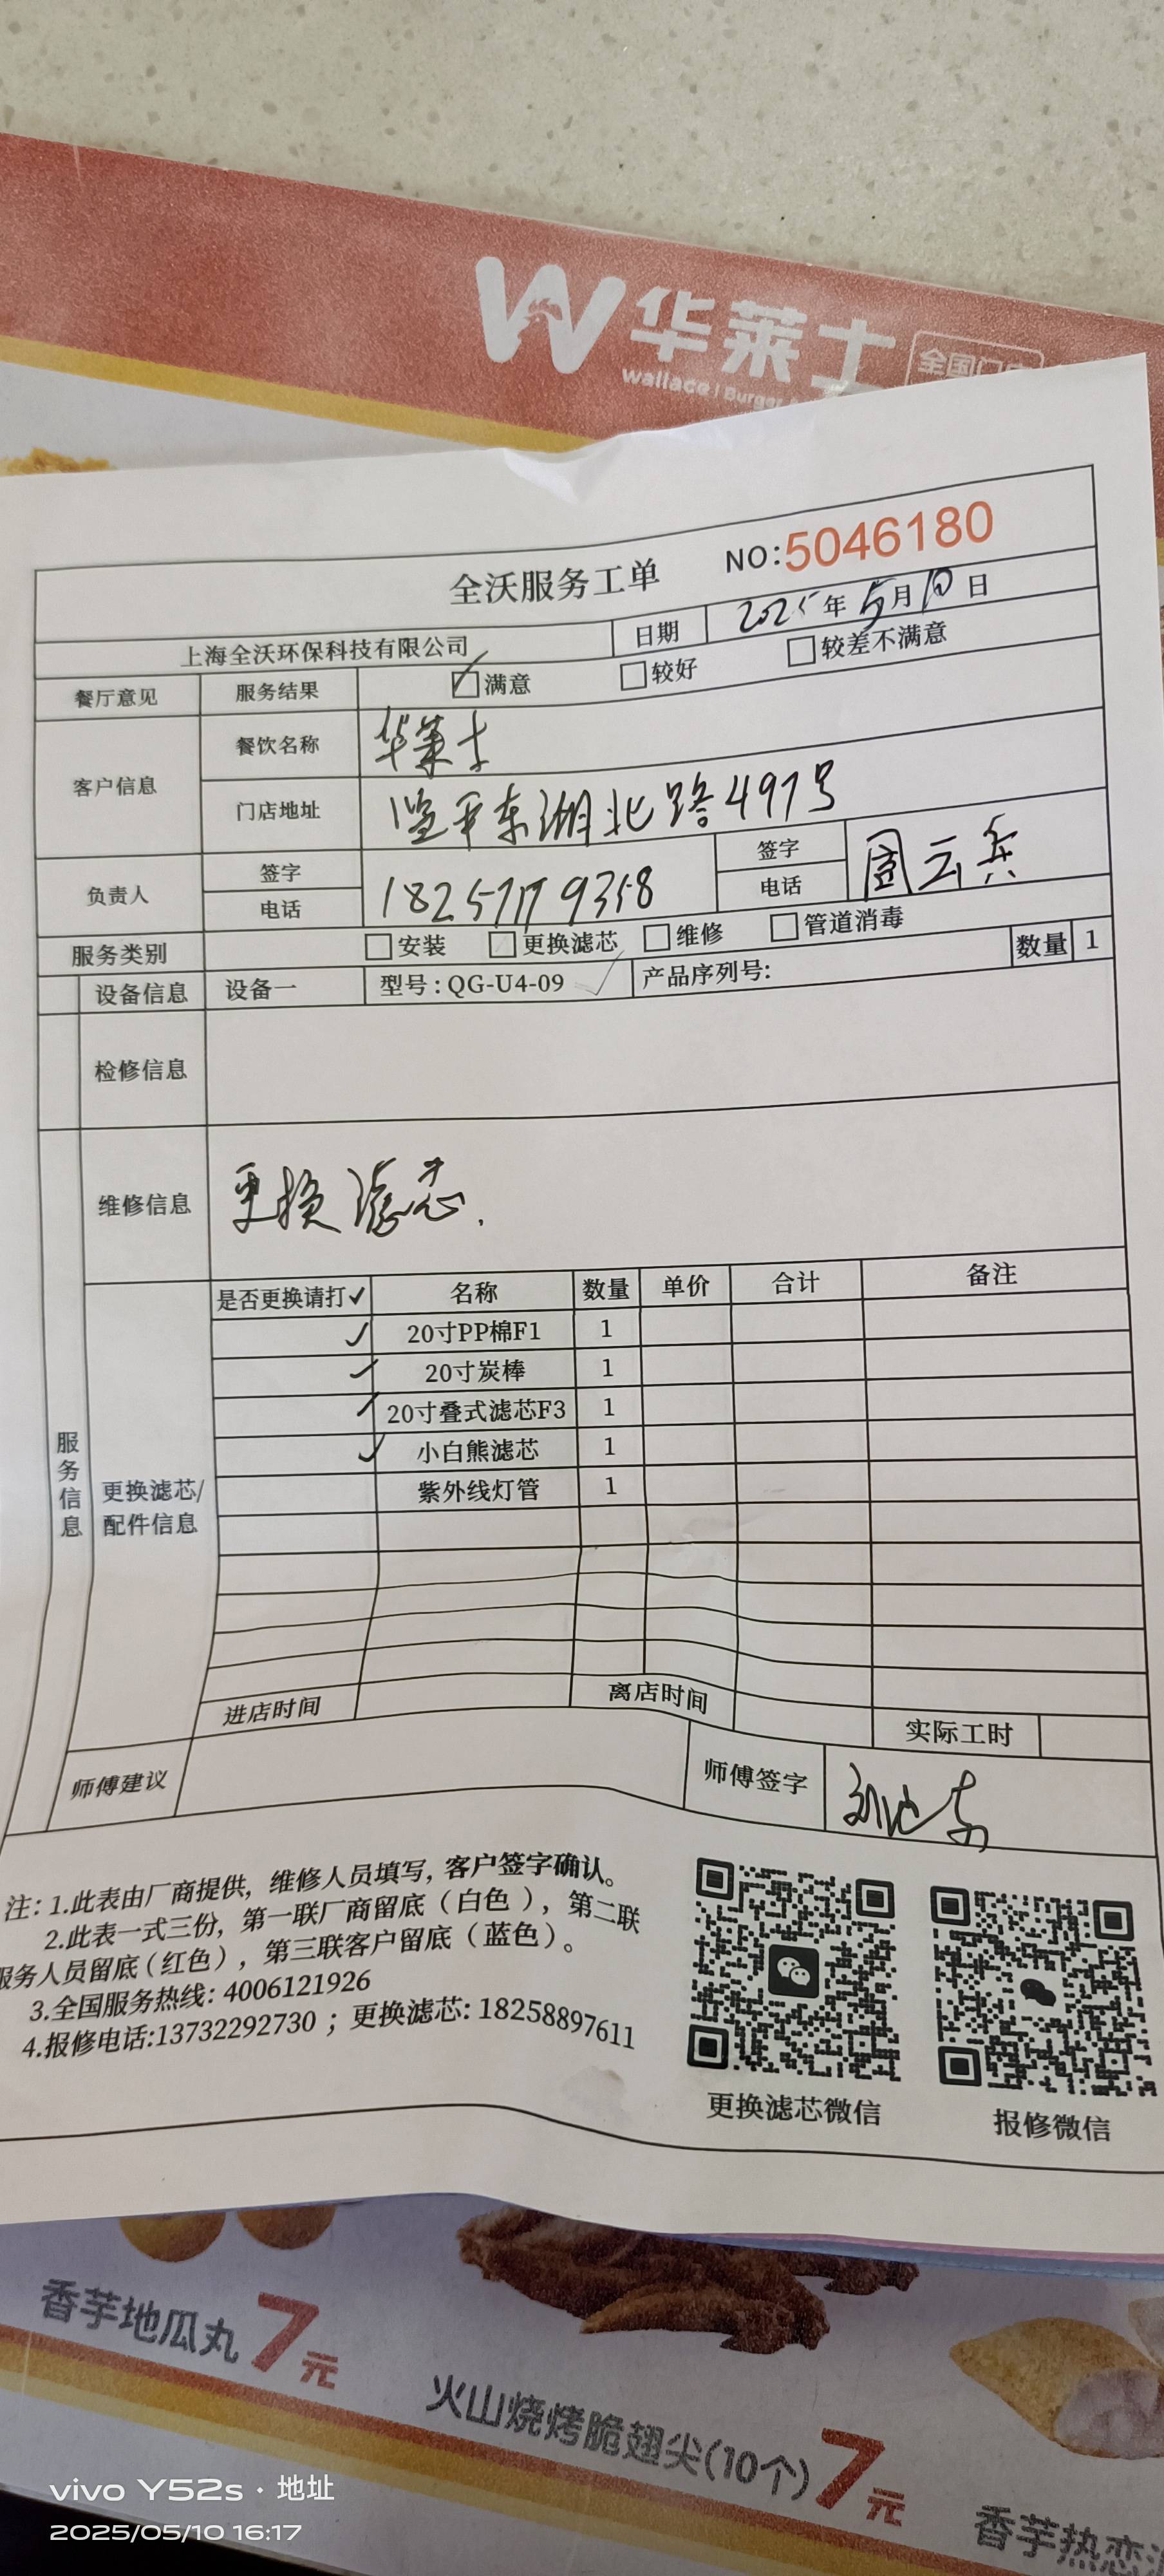 W华莱士 全国门店
Wallace | Burger
全沃服务工单 NO:5046180
上海全沃环保科技有限公司 日期 2025年5月10日
餐厅意见 服务结果 ☑满意 □较好 □较差不满意
客户信息 餐饮名称 华莱士
门店地址 平东湖北路497号
负责人 签字 签字
电话 18257179358 电话 周云兵
服务类别 □安装 □更换滤芯 □维修 □管道消毒
设备信息 设备一 型号:QG-U4-09 ✓ 产品序列号: 数量 1
检修信息
维修信息 更换滤芯.
服务信息
更换滤芯/
配件信息
是否更换请打✓ 名称 数量 单价 合计 备注
✓ 20寸PP棉F1 1
✓ 20寸炭棒 1
✓ 20寸叠式滤芯F3 1
✓ 小白熊滤芯 1
紫外线灯管 1
进店时间 离店时间 实际工时
师傅建议 师傅签字
注: 1.此表由厂商提供, 维修人员填写, 客户签字确认。
2.此表一式三份, 第一联厂商留底（白色）, 第二联
服务人员留底(红色), 第三联客户留底（蓝色）。
3.全国服务热线: 4006121926
4.报修电话:13732292730 ; 更换滤芯: 18258897611
更换滤芯微信 报修微信
香芋地瓜丸7元
火山烧烤脆翅尖(10个)7元
香芋热恋
vivo Y52s · 地址
2025/05/10 16:17